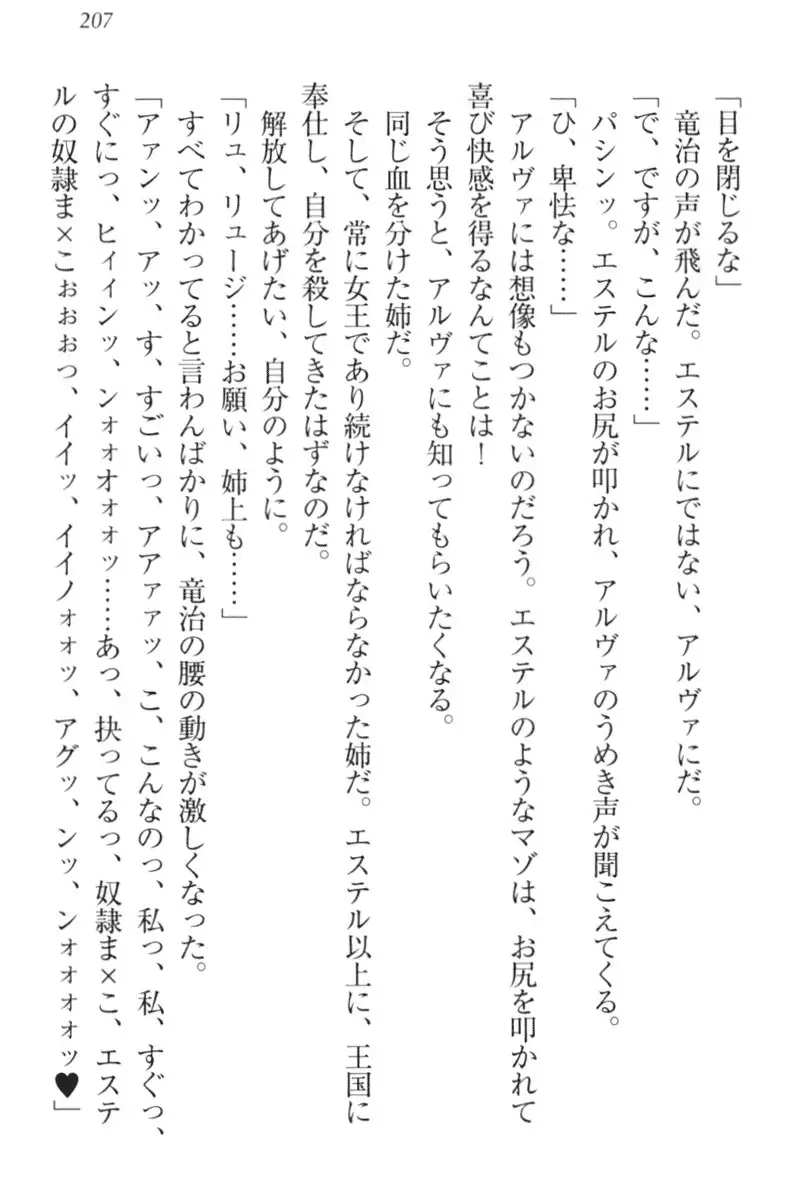 207
「目を閉じるな」
竜治の声が飛んだ。エステルにではない、アルヴァにだ。
「で、ですが、こんな……」
パシンッ。エステルのお尻が叩かれ、アルヴァのうめき声が聞こえてくる。
「ひ、卑怯な……」
アルヴァには想像もつかないのだろう。エステルのようなマゾは、お尻を叩かれて
喜び快感を得るなんてことは！
そう思うと、アルヴァにも知ってもらいたくなる。
同じ血を分けた姉だ。
そして、常に女王であり続けなければならなかった姉だ。エステル以上に、王国に
奉仕し、自分を殺してきたはずなのだ。
解放してあげたい、自分のように。
「リュ、リュージ……お願い、姉上も……」
すべてわかってると言わんばかりに、竜治の腰の動きが激しくなった。
「アァンッ、アッ、す、すごいっ、アアァァッ、こ、こんなのっ、私っ、私、すぐっ、
すぐにっ、ヒィィンッ、ンォォオォォッ……あっ、抉ってるっ、奴隷ま×こ、エステ
ルの奴隷ま×こぉぉぉっ、イイッ、イイノォォッ、アグッ、ンッ、ンォォォォッ♥」